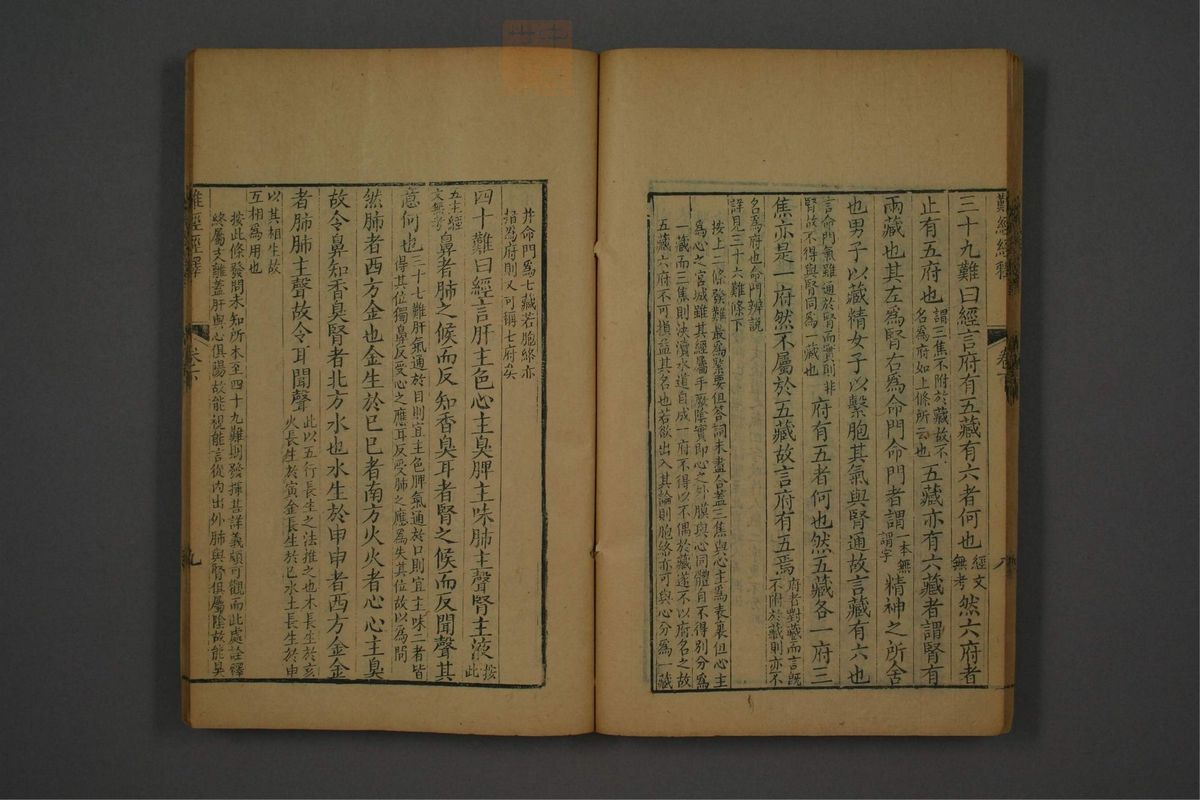 難經經釋
卷下
八
三十九難曰經言府有五藏有六者何也經文無考然六府者
止有五府也謂三焦不附於藏故不名爲府如上條所云也五藏亦有六藏者謂腎有
兩藏也其左爲腎右爲命門命門者謂一本無謂字精神之所舍
也男子以藏精女子以繫胞其氣與腎通故言藏有六也
言命門氣雖通於腎而實則非腎故不得與腎同爲一藏也府有五者何也然五藏各一府三
焦亦是一府然不屬於五藏故言府有五焉府者對藏而言既不附於藏則亦不
名爲府也命門辨說詳見三十六難條下
按上二條發難最爲緊要但答詞未盡合蓋三焦與心主爲表裏但心主
爲心之宮城雖其經屬手厥陰實即心之外膜與心同體自不得別分爲
一藏而三焦則決瀆水道自成一府不得以不偶於藏遂不以府名之故
五藏六府不可損益其名也若欲出入其論則胞絡亦可與心分爲一藏
并命門爲七藏若胞絡亦
指爲府則又可稱七府矣
四十難曰經言肝主色心主臭脾主味肺主聲腎主液按此
五主經文無考鼻者肺之候而反知香臭耳者腎之候而反聞聲其
意何也三十七難肝氣通於目則宜主色脾氣通於口則宜主味二者皆得其位獨鼻反受心之應耳反受肺之應爲失其位故以爲問
然肺者西方金也金生於巳巳者南方火火者心心主臭
故令鼻知香臭腎者北方水也水生於申申者西方金金
者肺肺主聲故令耳聞聲此以五行長生之法推之也木長生於亥火長生於寅金長生於巳水土長生於申
以其相生故互相爲用也
按此條發問未知所本至四十九難則發揮甚詳義頗可觀而此處詮釋
終屬支離蓋肝與心俱屬陽故能視能言從內出外肺與腎俱屬陰故能臭
難經經釋
卷下
九